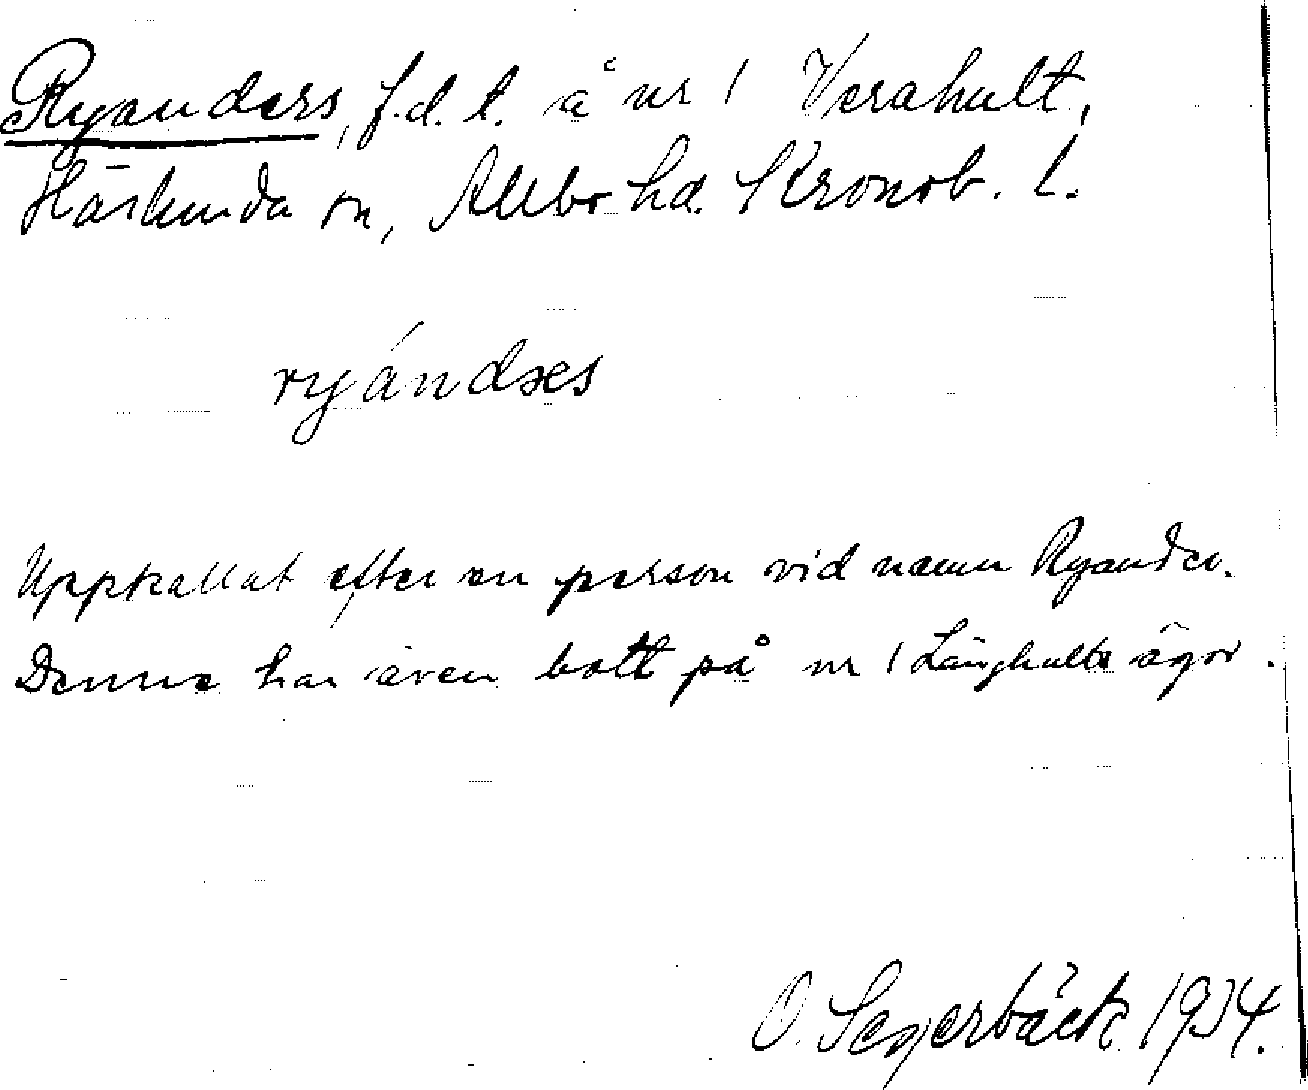 Ryanders, f.d. t. å nr 1 Verahult,
Härlunda sn, Allbo hd. Kronob. l.
ryándɘs
Uppkallat efter en person vid namn Ryander.
Denne har även bott på nr 1 Långhults ägor.
O. Segerbäck 1934.